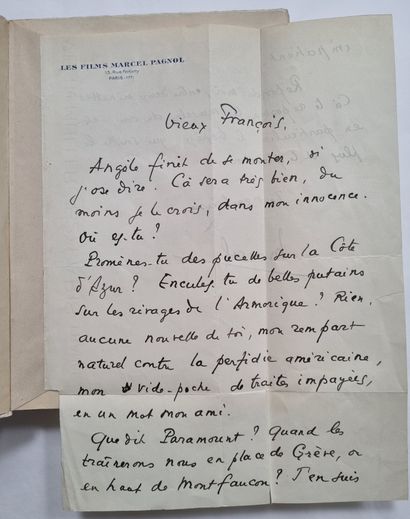 LES FILMS MARCEL PAGNOL
13, Rue Fortuny
PARIS-17e
Vieux François,
Angèle finit de se monter, si
j'ose dire. Cà sera très bien, du
moins je le crois, dans mon innocence.
Où es-tu ?
Promènes-tu des pucelles sur la Côte
d'Azur ? Encules-tu de belles putains
sur les rivages de l'Armorique ? Rien,
aucune nouvelle de toi, mon rempart
naturel contre la perfidie américaine,
mon vide-poche de traites impayées,
en un mot mon ami.
Que dit Paramount ? Quand les
traînerons nous en place de Grève, ou
en haut de Montfaucon ? J'en suis